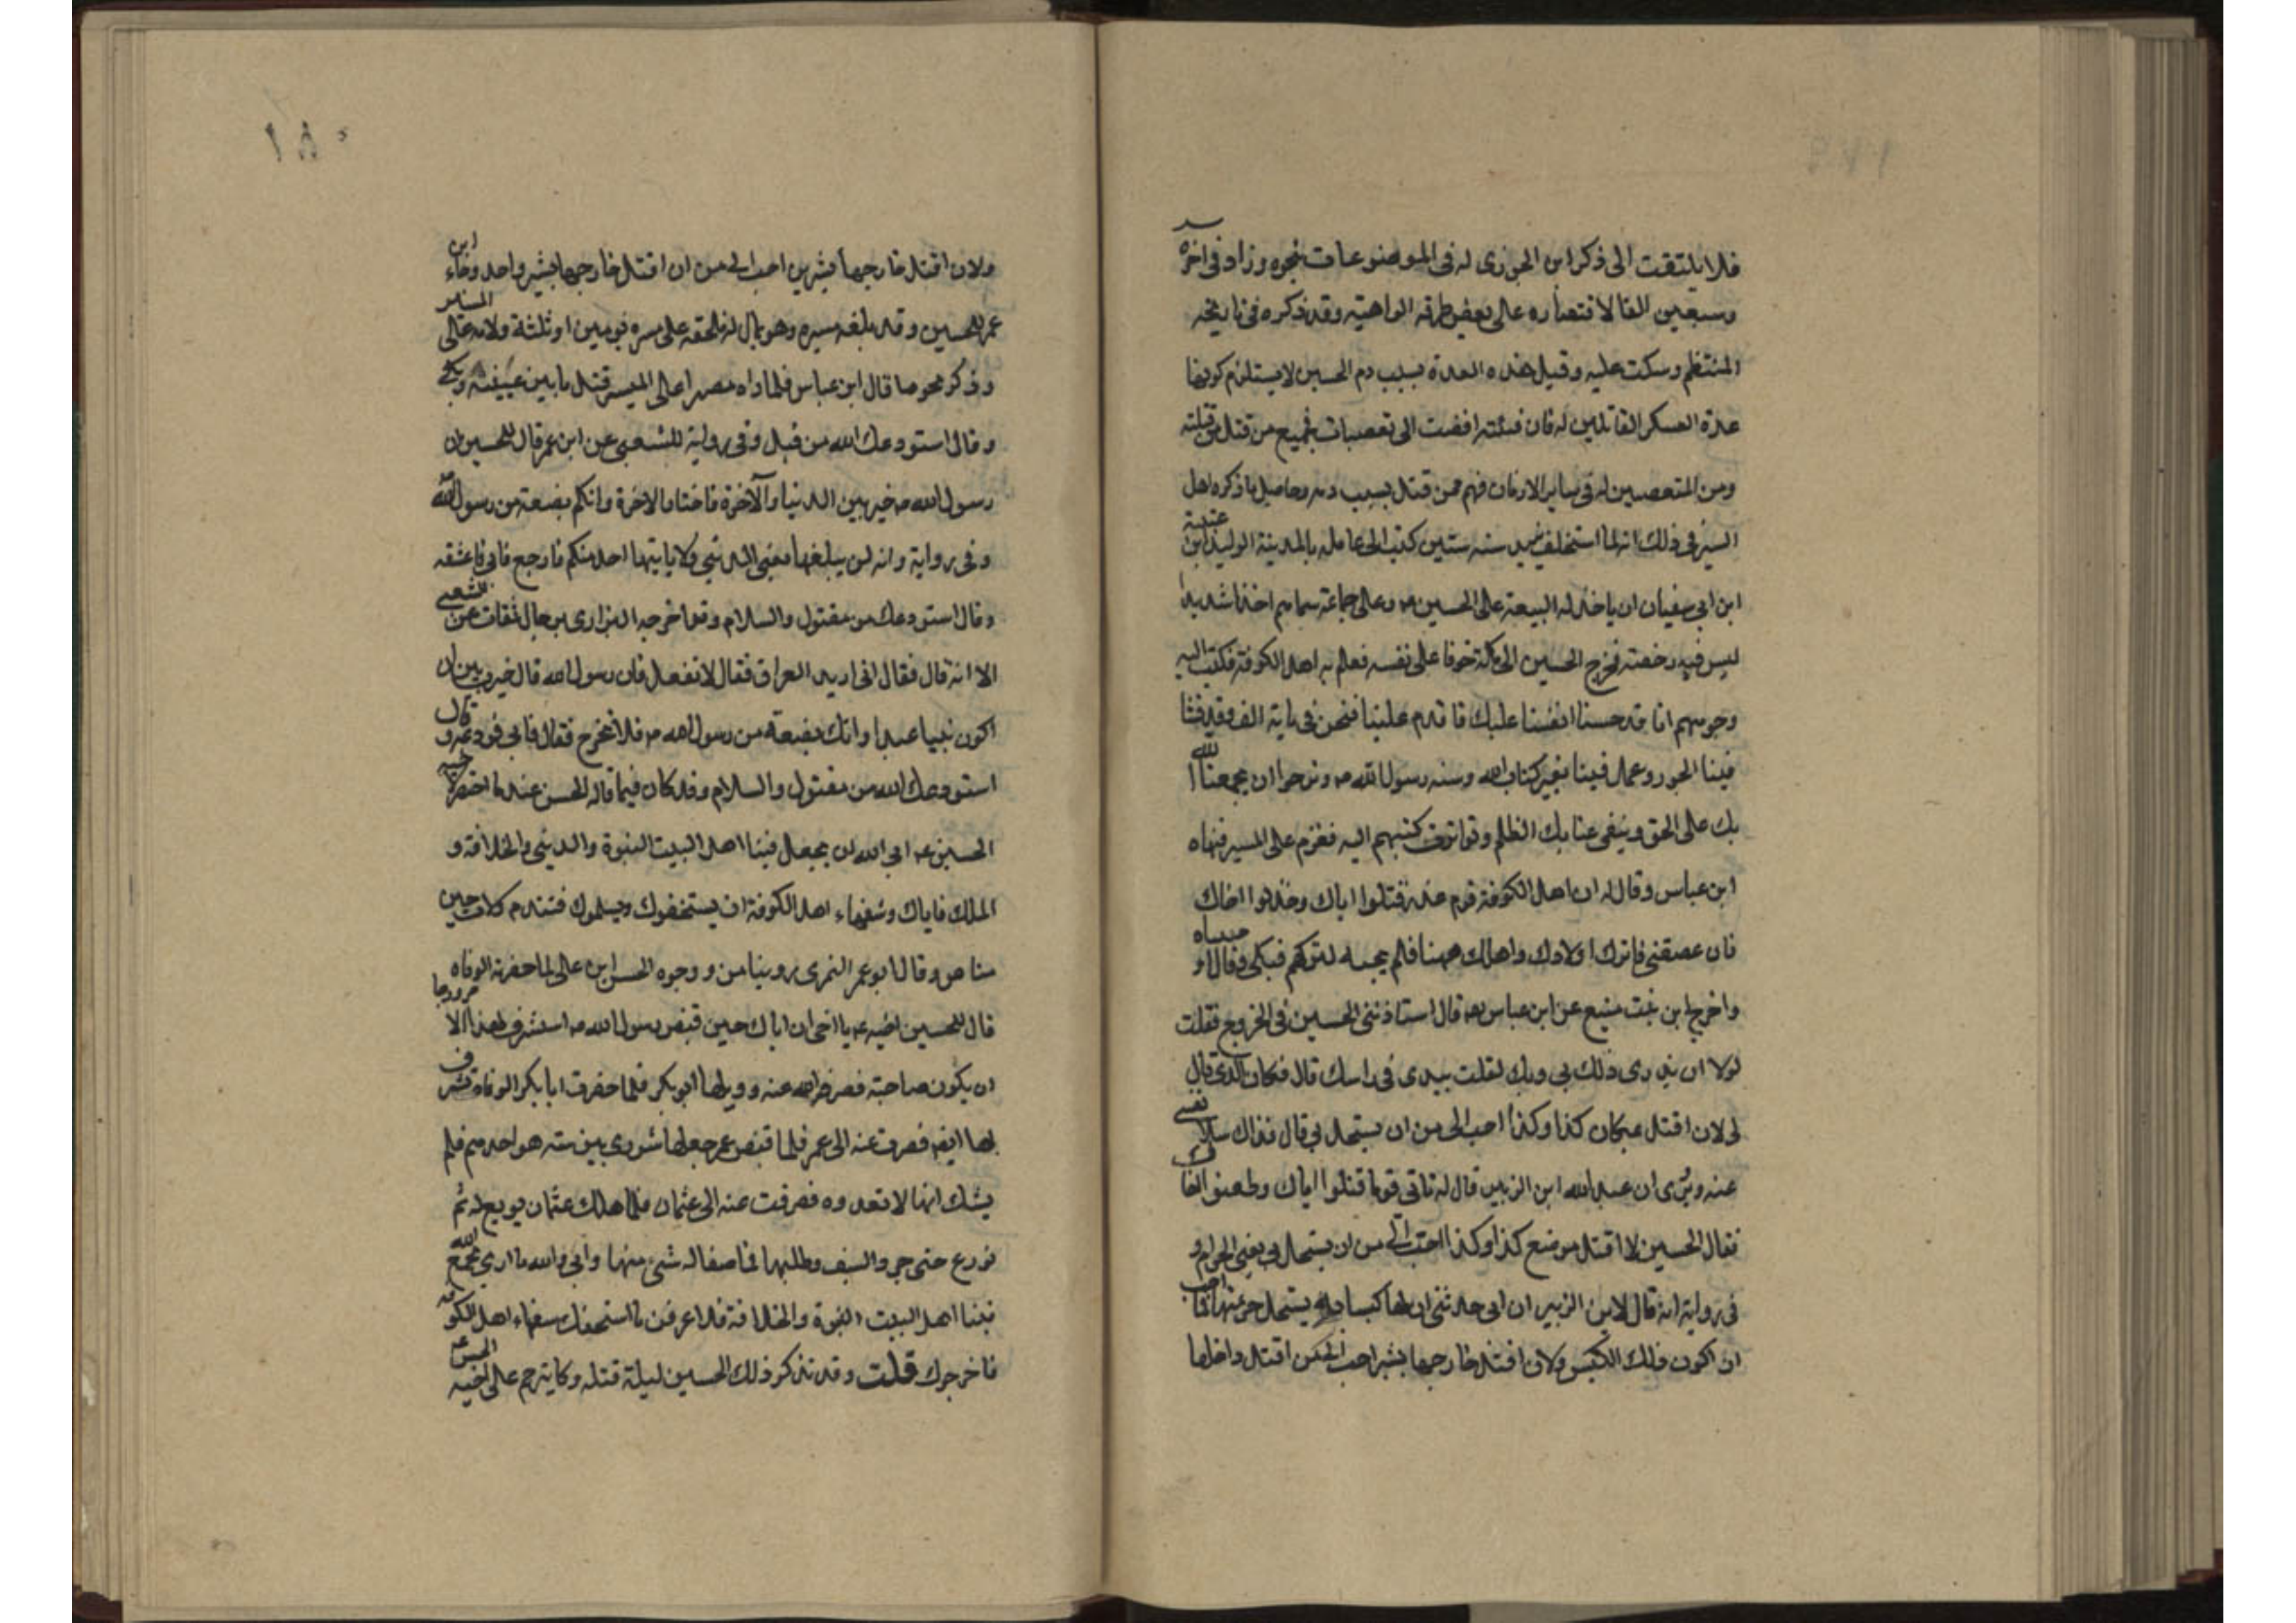 فلا يلتفت الى ذكر ابن الجوزى له فى الموضوعات بنحوه وزاد فى اخره
وسبعين الفا لاقتصاره على بعض طرقه الواهيه وقد ذكره فى تاريخه
المنتظم وسكت عليه وقيل هذه العدة بسبب دم الحسين لا يستلزم كونها
عدة العسكر القاتلين له فان فتنته افضت الى تعصبات بجميع من قتل من قتلته
ومن المتعصبين له فى ساير الازمان فهم ممن قتل بسبب دمه وحاصل ما ذكره اهل
السير فى ذلك انه لما استخلف يزيد سنه ستين كتب الى عامله بالمدينة الوليد ابن عتبة
ابن ابى سفيان ان ياخذ له البيعة على الحسين عه وعلى جماعة سماهم اخذا شديدا
ليس فيه رخصته فخرج الحسين الى مكة خوفا على نفسه فعلم به اهل الكوفة فكتب اليه
وجوههم انا قد حسنا انفسنا عليك فاقدم علينا فنحن فى ماية الف وقد فشا
فينا الجور وعمل فينا بغير كتاب الله وسنه رسول الله ص ونرجوا ان يجمعنا الله
بك على الحق وينفى عنا بك الظلم وتواترت كتبهم اليه فعزم على المسير فنهاه
ابن عباس وقال له ان اهل الكوفة قوم غدر قتلوا اباك وخذلوا اخاك
فان عصيتنى فاترك اولادك واهلك ههنا فلم يجبه فبكى وقال وا حبيباه
واخرج ابن بنت منيع عن ابن عباس رضه قال استاذننى الحسين فى الخروج فقلت
لولا ان يزرى ذلك بى وبك لقلت بيدى فى راسك قال فكان الذى قال
لى لان اقتل بمكان كذا وكذا احب الى من ان يستحل بى قال فذاك سلا نفسى
عنه ويروى ان عبد الله ابن الزبير قال له تاتى قوما قتلوا اباك وطعنوا اخاك
فقال الحسين لا اقتل موضع كذا وكذا احب الى من ان يستحل بى يعنى الحرام و
فى رواية انه قال لابن الزبير ان ابى حدثنى ان لها كبشا به يستحل حرمتها فما احب
ان اكون ذلك الكبش ولان اقتل خارجها بشبر احب الى من اقتل داخلها
١٨٠
ولان اقتل خارجها بشبرين احب الى من ان اقتل خارجها بشبر واحد وجاء ابن
عمر للحسين وقد بلغه مسيره وهو بمال له فلحقه على مسيره يومين او ثلثة ولامه على المسير
وذكر نحو ما قال ابن عباس فلما راه مصرا على المسير قبل ما بين عينيه وبكى
وقال استودعك الله من قتيل وفى رواية للشعبى عن ابن عمر قال للحسين ان
رسول الله ص خير بين الدنيا والآخرة فاختار الاخرة وانكم بضعة من رسول الله
وفى رواية وانه لن يبلغها يعنى الدنيى ولا ياتيها احد منكم فارجع فابى فاعتنقه
وقال استودعك من مقتول والسلام وقد اخرجه البزارى برجال ثقات عن الشعبى
الا انه قال فقال انى اريد العراق فقال لا تفعل فان رسول الله قال خيرت بين ان
اكون نبيا عبدا وانك بضعة من رسول الله ص فلا تخرج فقال فابى فودعه و قال
استودعك الله من مقتول والسلام وقد كان فيما قاله الحسن عند ما احتضر لاخيه
الحسين عه ابى الله ان يجعل فينا اهل البيت النبوة والدنيى والخلافة و
الملك فاياك وسفهاء اهل الكوفة ان يستخفوك ويسلموك فتندم ولات حين
مناص وقال ابو عمر النمرى روينا من وجوه الحسن ابن على لما حضرته الوفاه
قال للحسين اخيه عه يا اخى ان اباك حين قبض رسول الله ص استشرف لهذا الامر ورجا
ان يكون صاحبه فصرفه الله عنه ووليها ابو بكر فلما حضرت ابا بكر الوفاة تشرف
لها ايضا فصرفت عنه الى عمر فلما قبض عمر جعلها شورى بين سته هو احدهم فلم
يشك انها لا تعدوه فصرفت عنه الى عثمان فلما هلك عثمان بويع له ثم
نوزع حتى جرد السيف وطلبها فما صفا له شىء منها وانى والله ما ارى يجمع الله
فينا اهل البيت النبوة والخلافة فلا اعرفن ما استخفك سفهاء اهل الكوفه
فاخرجوك قلت وقد تذكر ذلك الحسين ليلة قتله وكا يترحم على اخيه الحسن عه